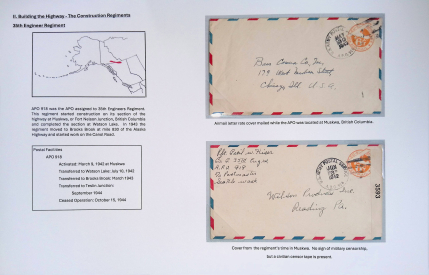 II. Building the Highway - The Construction Regiments
35th Engineer Regiment
APO 918 was the APO assigned to 35th Engineers Regiment.
This regiment started construction on its section of the
highway at Muskwa, or Fort Nelson Junction, British Columbia
and completed the section at Watson Lake. In 1943 the
regiment moved to Brooks Brook at mile 830 of the Alaska
highway and started work on the Canol Road.
Postal Facilities
APO 918
Activated: March 8, 1942 at Muskwa
Transferred to Watson Lake: July 10, 1942
Transferred to Brooks Brook: March 1943
Transferred to Teslin Junction:
September 1944
Ceased Operation: October 15, 1944
1942
Bass Camera Co, Inc,
179 West Madison Street
Chicago Ill. U.S.G.
Airmail letter rate cover mailed while the APO was located at Muskwa, British Columbia.
Co D 35th Engrs
A.P.O. 918
c/o Postmaster
Seattle Wash
1942
Reading Pa.
3593
Cover from the regiment's time in Muskwa. No sign of military censorship,
but a civilian censor tape is present.